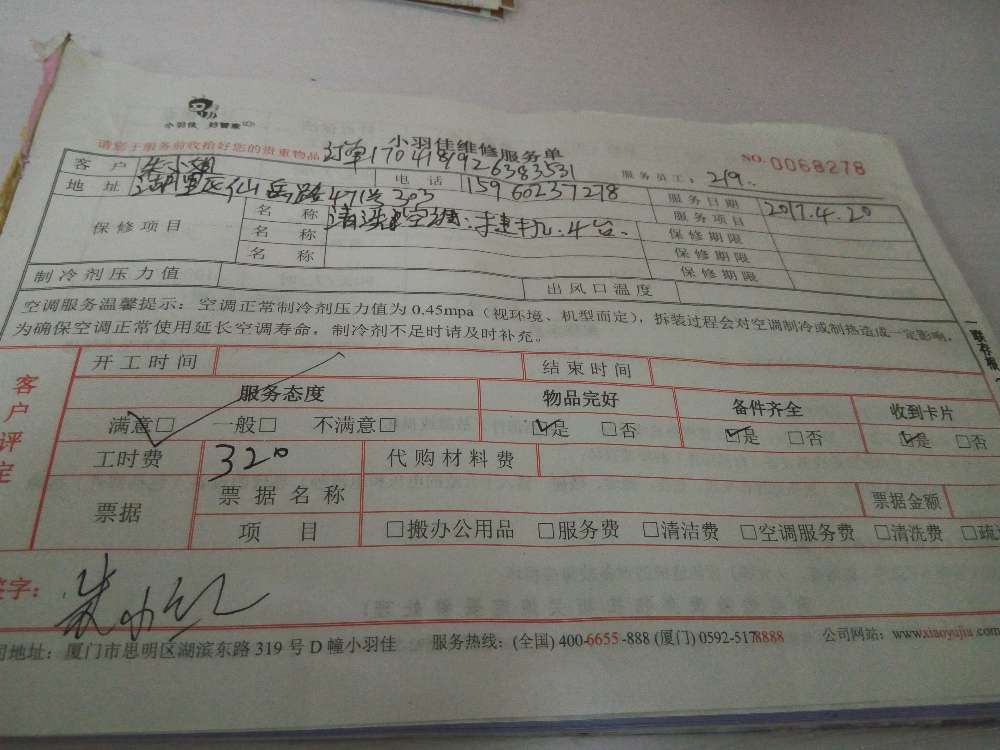 小羽佳 好管家
小羽佳维修服务单
请您于服务前收拾好您的贵重物品 订单1704181926383531 服务员工: 219. NO. 0068278
客户 朱小姐 电话 15960237278 服务日期 2017.4.20
地址 湖里区仙岳路471号303 服务项目
保修项目 名称 清洗空调:挂机.4台. 保修期限
名称 保修期限
名称 保修期限
制冷剂压力值 出风口温度
空调服务温馨提示: 空调正常制冷剂压力值为 0.45mpa (视环境、机型而定), 拆装过程会对空调制冷或制热造成一定影响,
为确保空调正常使用延长空调寿命, 制冷剂不足时请及时补充。
一联存根
客户评定
开工时间 结束时间
服务态度 物品完好 备件齐全 收到卡片
满意□ 一般□ 不满意□ ☑是 □否 ☑是 □否 ☑是 □否
工时费 320 代购材料费
票据 票据名称 票据金额
项目 □搬办公用品 □服务费 □清洁费 □空调服务费 □清洗费 □疏
签字: 朱小红
司地址: 厦门市思明区湖滨东路 319 号 D 幢小羽佳 服务热线: (全国) 400-6655-888 (厦门) 0592-5178888 公司网站: www.xiaoyujia.com